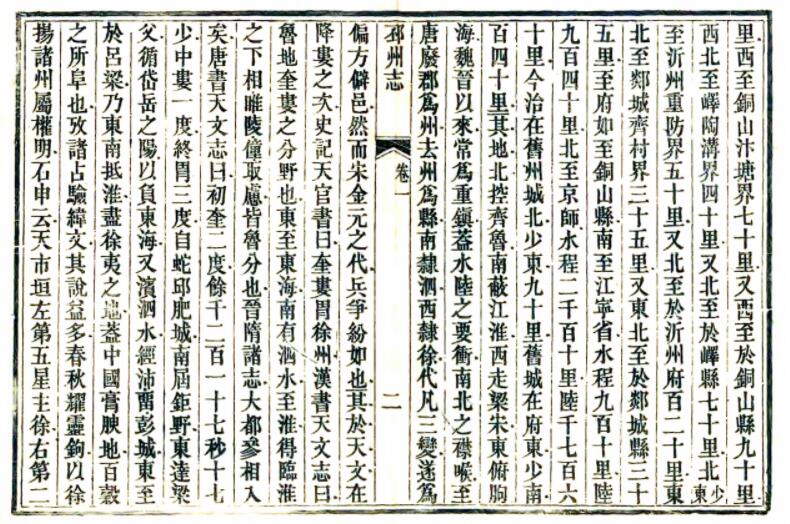 里西至銅山汴塘界七十里又西至於銅山縣九十里
西北至嶧陶溝界四十里又北至於嶧縣七十里北少東
至沂州重防界五十里又北至於沂州府百二十里東
北至郯城齊村界三十五里又東北至於郯城縣三十
五里至府如至銅山縣南至江寧省水程九百十里陸
九百四十里北至京師水程二千百十里陸千七百六
十里今治在舊州城北少東九十里舊城在府東少南
百四十里其地北控齊魯南蔽江淮西走梁宋東俯朐
海魏晉以來常爲重鎮葢水陸之要衝南北之襟喉至
唐廢郡爲州去州爲縣南隸泗西隸徐代凡三變遂爲
邳州志 卷一 二
偏方僻邑然而宋金元之代兵爭紛如也其於天文在
降婁之次史記天官書曰奎婁胃徐州漢書天文志曰
魯地奎婁之分野也東至東海南有泗水至淮得臨淮
之下相睢陵僮取慮皆魯分也晉隋諸志大都參相入
矣唐書天文志曰初奎二度餘千二百一十七秒十七
少中婁一度終胃三度自蛇邱肥城南屆鉅野東達梁
父循岱岳之陽以負東海又濱泗水經沛畱彭城東至
於呂梁乃東南抵淮盡徐夷之地葢中國膏腴地百穀
之所阜也攷諸占驗緯文其說益多春秋耀靈鉤以徐
揚諸州屬權明石申云天市垣左第五星主徐右第二